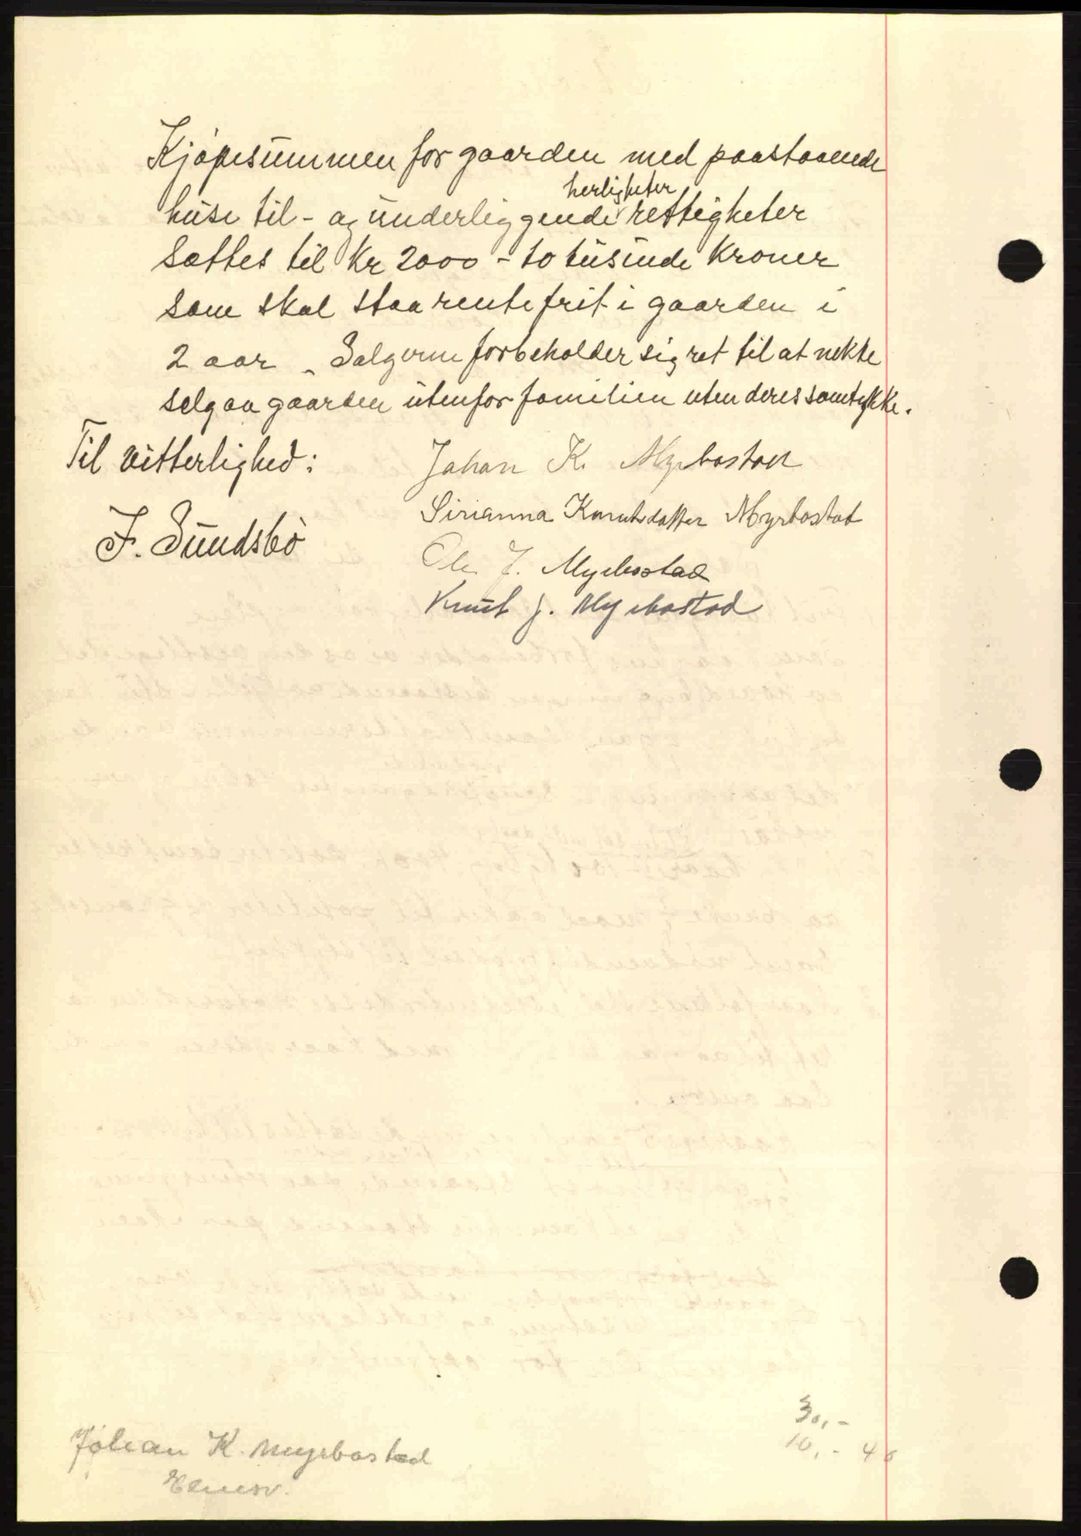 Kjøpesummen for gaarden med paastaaende
huse til- og underliggende herligheter rettigheter
Sættes til Kr 2000 - to tusinde Kroner
som skal staa rentefrit i gaarden i
2 aar - Selgerne forbeholder sig ret til at nekte
selgaa gaarden utenfor familien uten deres samtykke.
Til vitterlighed:
F. Sundsbö
Johan K. Myrbostad
Sirianna Knutsdatter Myrbostad
Ole J. Myrbostad
Knut J. Myrbostad
30,-
10,- 40
Johan K. Myrbostad